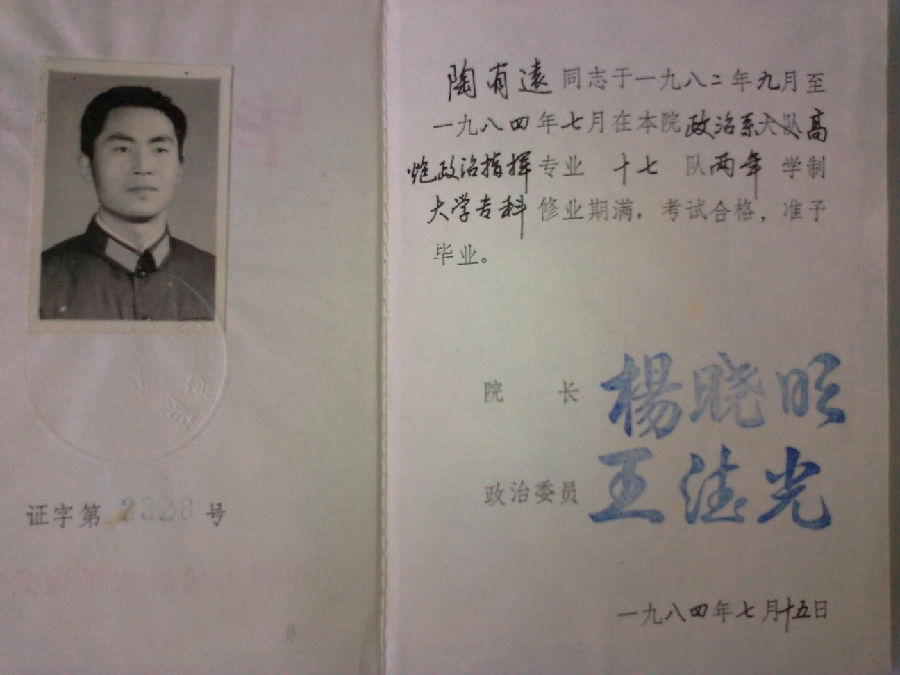 陶有遠同志于一九八二年九月至
一九八四年七月在本院政治系大队高
炮政治指挥专业 十七 队两年 学制
大学专科修业期满，考试合格，准予
毕业。
院 长 楊晓
政治委员 王 光
证字第2328号
一九八四年七月十五日